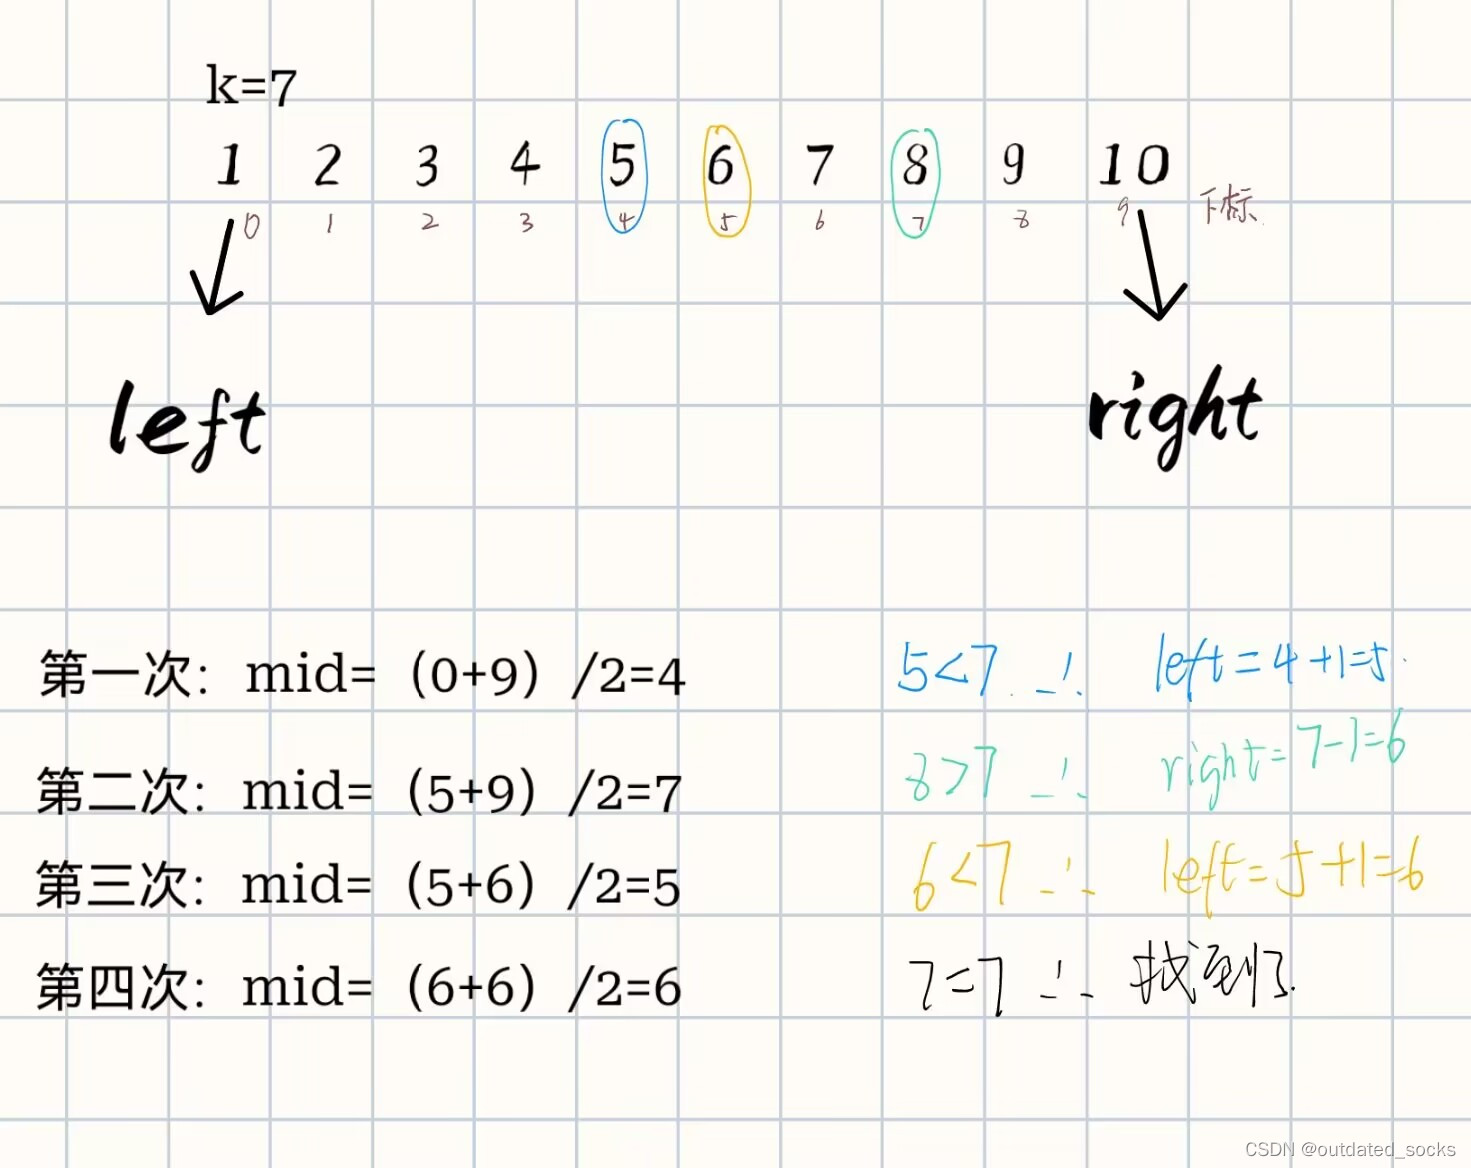 k=7
1 2 3 4 5 6 7 8 9 10
0 1 2 3 4 5 6 7 8 9 下标
left right
第一次：mid=（0+9）/2=4 5<7 ∴ left=4+1=5
第二次：mid=（5+9）/2=7 8>7 ∴ right=7-1=6
第三次：mid=（5+6）/2=5 6<7 ∴ left=5+1=6
第四次：mid=（6+6）/2=6 7=7 ∴ 找到了.
CSDN @outdated_socks